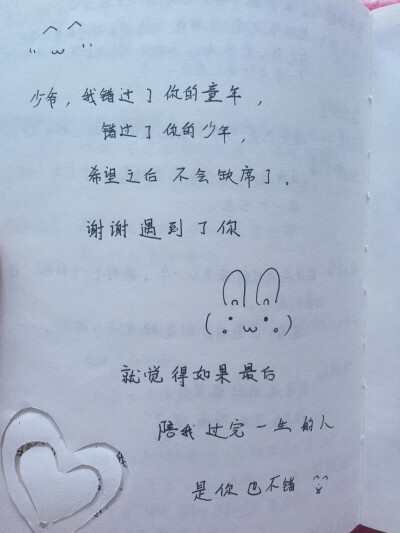 少爷，我错过了你的童年，
错过了你的少年，
希望之后不会缺席了。
谢谢遇到了你
就觉得如果最后
陪我过完一生的人
是你也不错